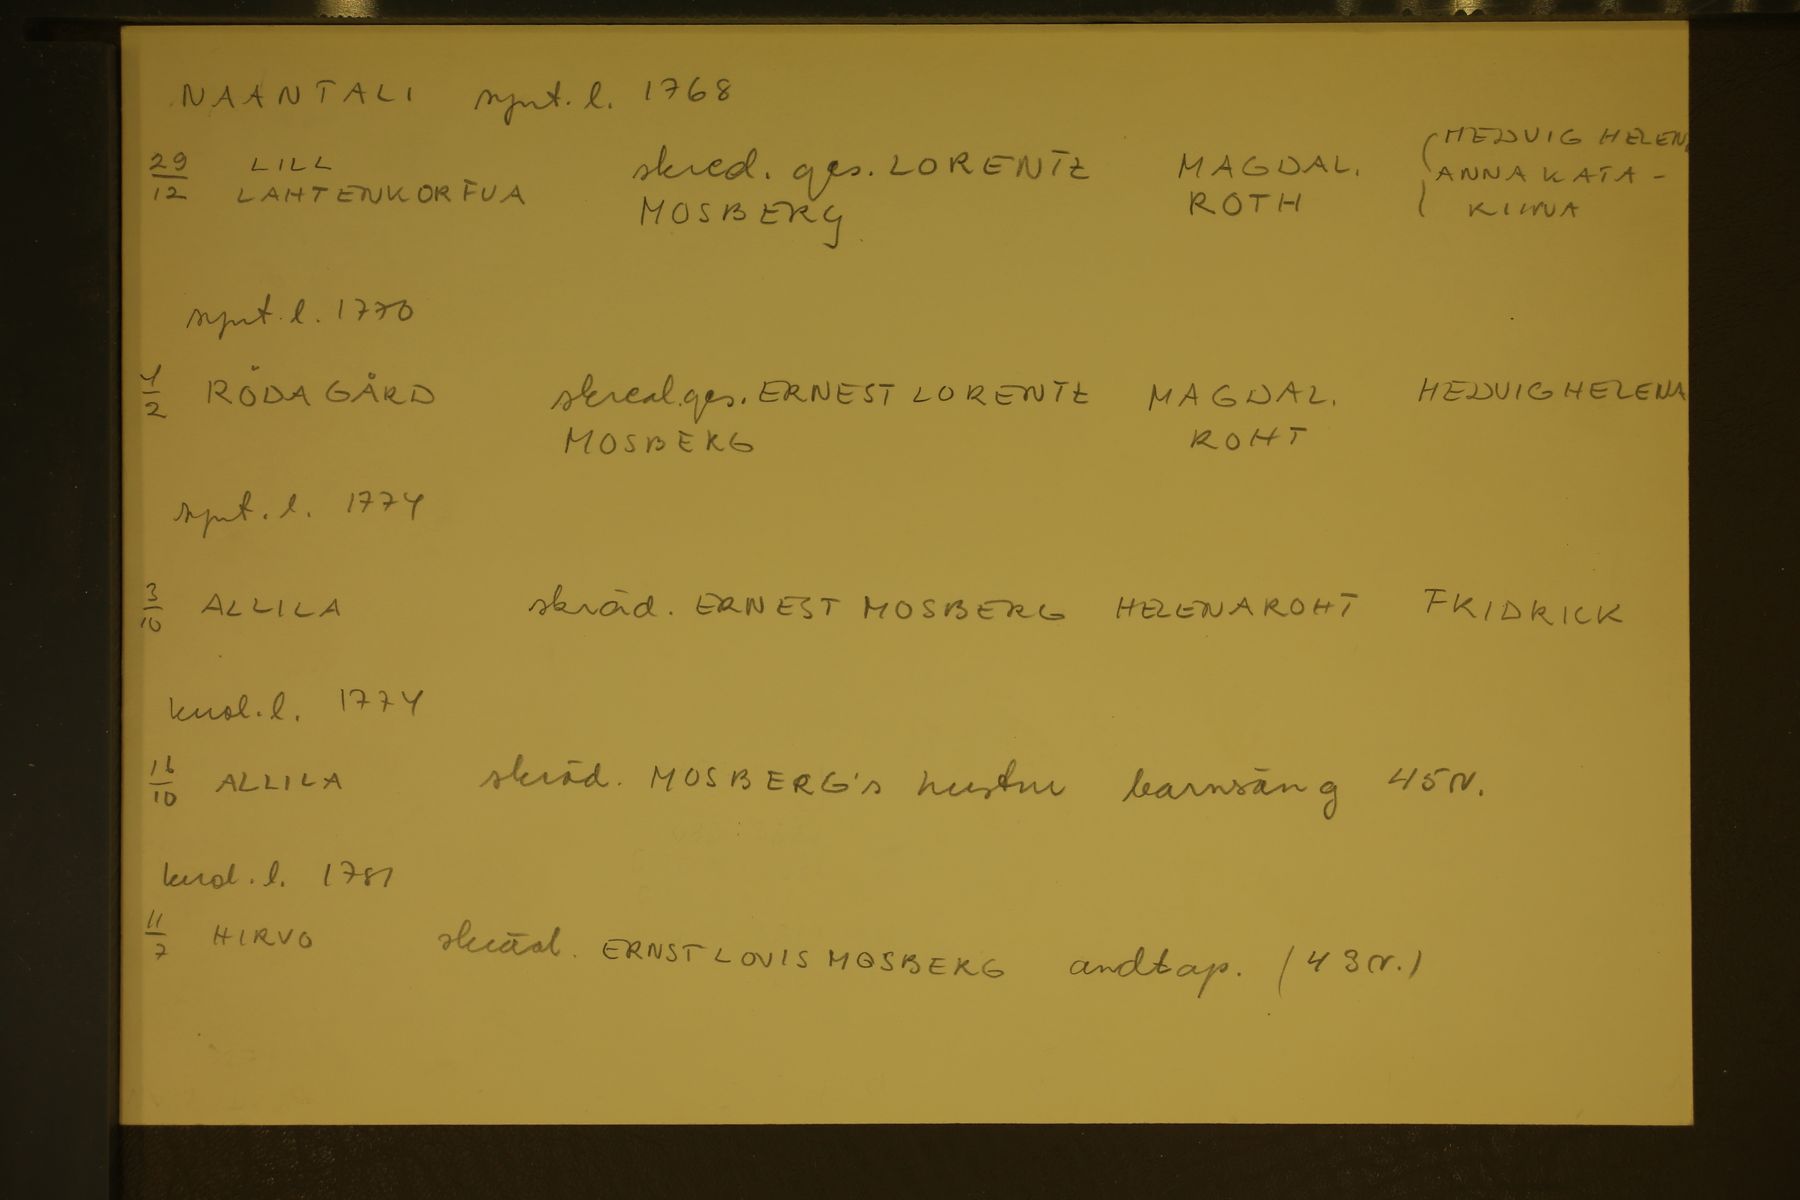 NAANTALI synt. l. 1768
29/12 LILL LAHTENKORFVA skred. ges. LORENTZ MOSBERG MAGDAL. ROTH (HEDVIG HELEN. ANNA KATA-RIINA
synt. l. 1770
1/2 RÖDAGÅRD skred. ges. ERNEST LORENTZ MOSBERG MAGDAL. ROHT HEDVIG HELENA
synt. l. 1774
3/10 ALLILA skräd. ERNEST MOSBERG HELENA ROHT FRIDRICK
kuol. l. 1774
16/10 ALLILA skräd. MOSBERG's hustru barnsäng 45 v.
kuol. l. 1781
11/7 HIRVO skräd. ERNST LOVIS MOSBERG andtäp. (43 v.)